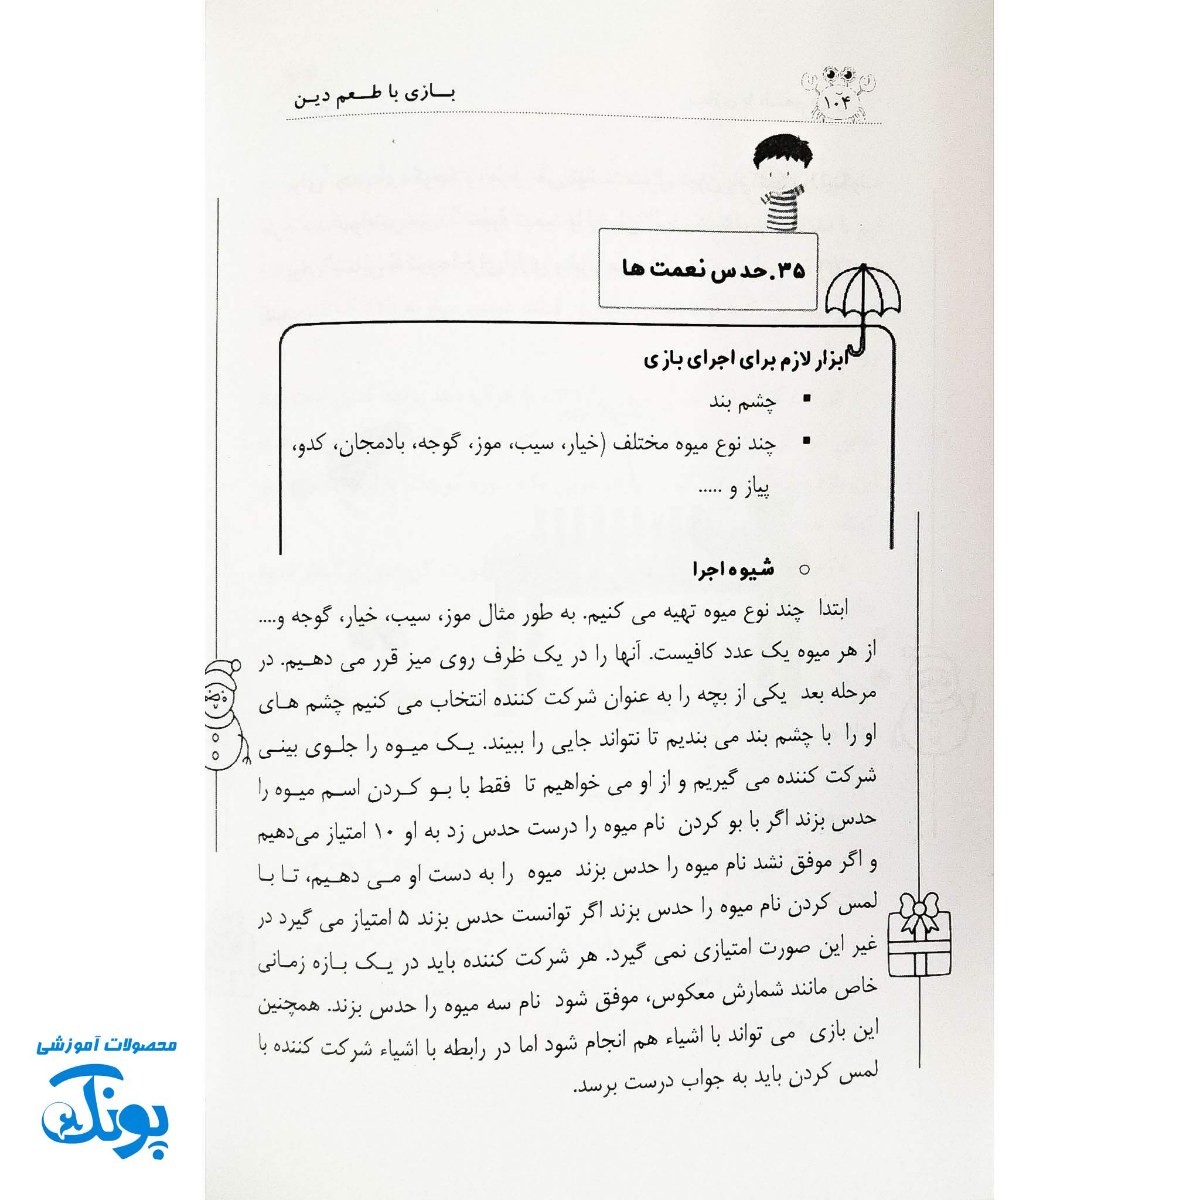 ۱۰۴
بازی با طعم دین
۳۵.حدس نعمت ها
ابزار لازم برای اجرای بازی
▪ چشم بند
▪ چند نوع میوه مختلف (خیار، سیب، موز، گوجه، بادمجان، کدو،
پیاز و .....
○ شیوه اجرا
ابتدا چند نوع میوه تهیه می کنیم. به طور مثال موز، سیب، خیار، گوجه و....
از هر میوه یک عدد کافیست. آنها را در یک ظرف روی میز قرر می دهیم. در
مرحله بعد یکی از بچه را به عنوان شرکت کننده انتخاب می کنیم چشم های
او را با چشم بند می بندیم تا نتواند جایی را ببیند. یک میوه را جلوی بینی
شرکت کننده می گیریم و از او می خواهیم تا فقط با بو کردن اسم میوه را
حدس بزند اگر با بو کردن نام میوه را درست حدس زد به او ۱۰ امتیاز می‌دهیم
و اگر موفق نشد نام میوه را حدس بزند میوه را به دست او می دهیم، تا با
لمس کردن نام میوه را حدس بزند اگر توانست حدس بزند ۵ امتیاز می گیرد در
غیر این صورت امتیازی نمی گیرد. هر شرکت کننده باید در یک بازه زمانی
خاص مانند شمارش معکوس، موفق شود نام سه میوه را حدس بزند. همچنین
این بازی می تواند با اشیاء هم انجام شود اما در رابطه با اشیاء شرکت کننده با
لمس کردن باید به جواب درست برسد.
محصولات آموزشی
پونک